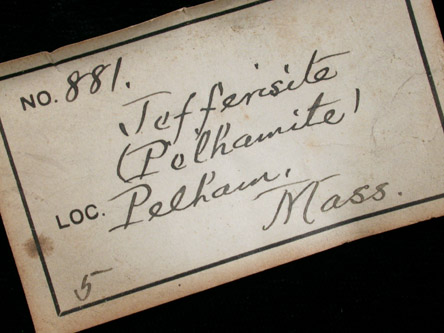 NO. 881.
Jefferisite
(Pelhamite)
LOC. Pelham,
Mass.
5